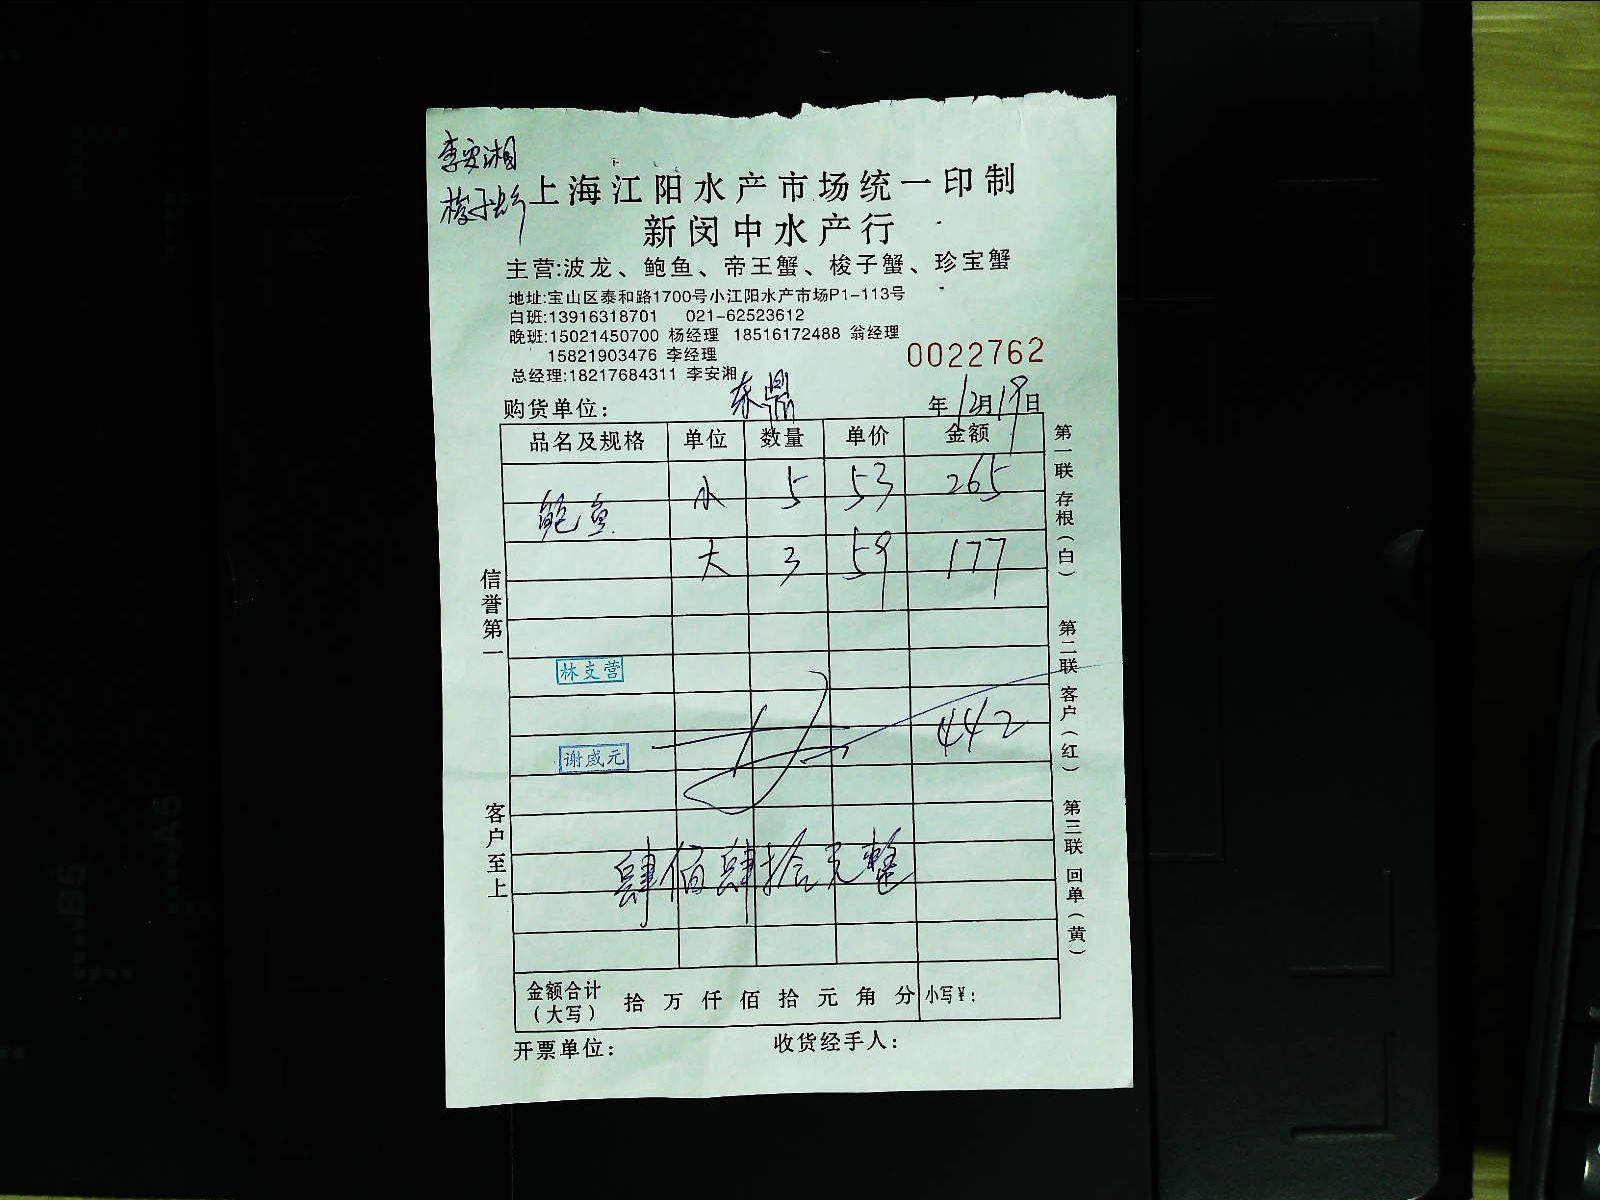 李安湘
上海江阳水产市场统一印制
新闵中水产行
主营:波龙、鲍鱼、帝王蟹、梭子蟹、珍宝蟹
地址:宝山区泰和路1700号小江阳水产市场P1-113号
白班:13916318701 021-62523612
晚班:15021450700 杨经理 18516172488 翁经理
15821903476 李经理
0022762
总经理:18217684311 李安湘
购货单位: 东鼎 年12月19日
品名及规格 单位 数量 单价 金额
小 5 53 265
鲍鱼
大 3 59 177
林支营
442
谢咸元
肆佰肆拾元整
金额合计(大写) 拾 万 仟 佰 拾 元 角 分 小写¥:
开票单位: 收货经手人:
信誉第一
客户至上
第一联 存根(白)
第二联 客户(红)
第三联 回单(黄)